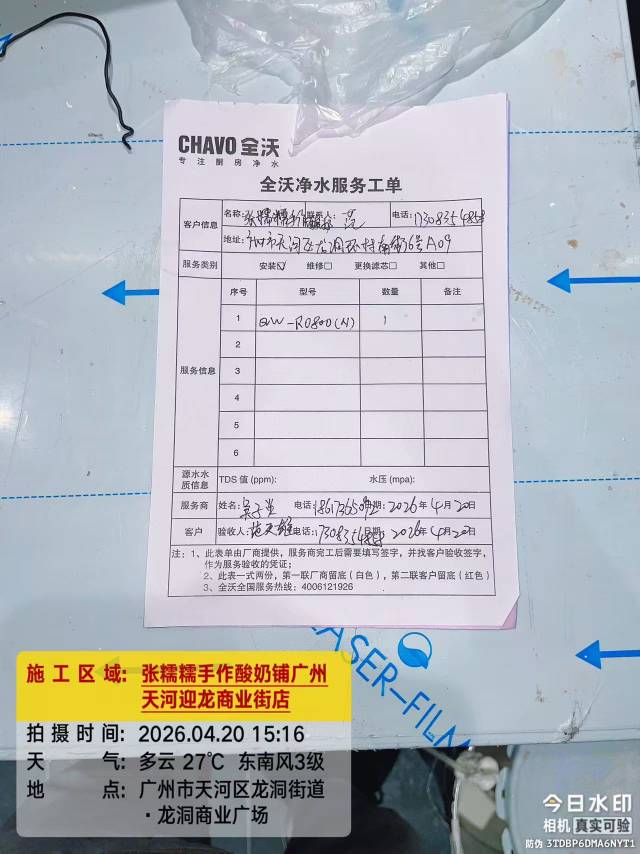 CHAVO 全沃
专注厨房净水
全沃净水服务工单
客户信息 名称: 张糯糯 联系人: 电话:
地址: 广州市天河区龙洞 A09
服务类别 安装☑ 维修□ 更换滤芯□ 其他□
服务信息 序号 型号 数量 备注
1 QW-RO800(N) 1
2
3
4
5
6
源水水质信息 TDS 值 (ppm): 水压 (mpa):
服务商 姓名: 电话: 日期: 2026年4月20日
客户 验收人: 电话: 日期: 2026年4月20日
注: 1、此表单由厂商提供，服务商完工后需要填写签字，并找客户验收签字，
作为服务验收的凭证；
2、此表一式两份，第一联厂商留底（白色），第二联客户留底（红色）
3、全沃全国服务热线：4006121926
LASER-FILM
施工区域: 张糯糯手作酸奶铺广州
天河迎龙商业街店
拍摄时间: 2026.04.20 15:16
天气: 多云 27℃ 东南风3级
地点: 广州市天河区龙洞街道
·龙洞商业广场
今日水印
相机 真实可验
防伪 3TDBP6DMA6NYT1